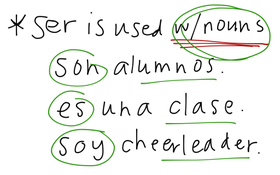 *ser is used w/nouns
son alumnos.
es una clase.
soy cheerleader.